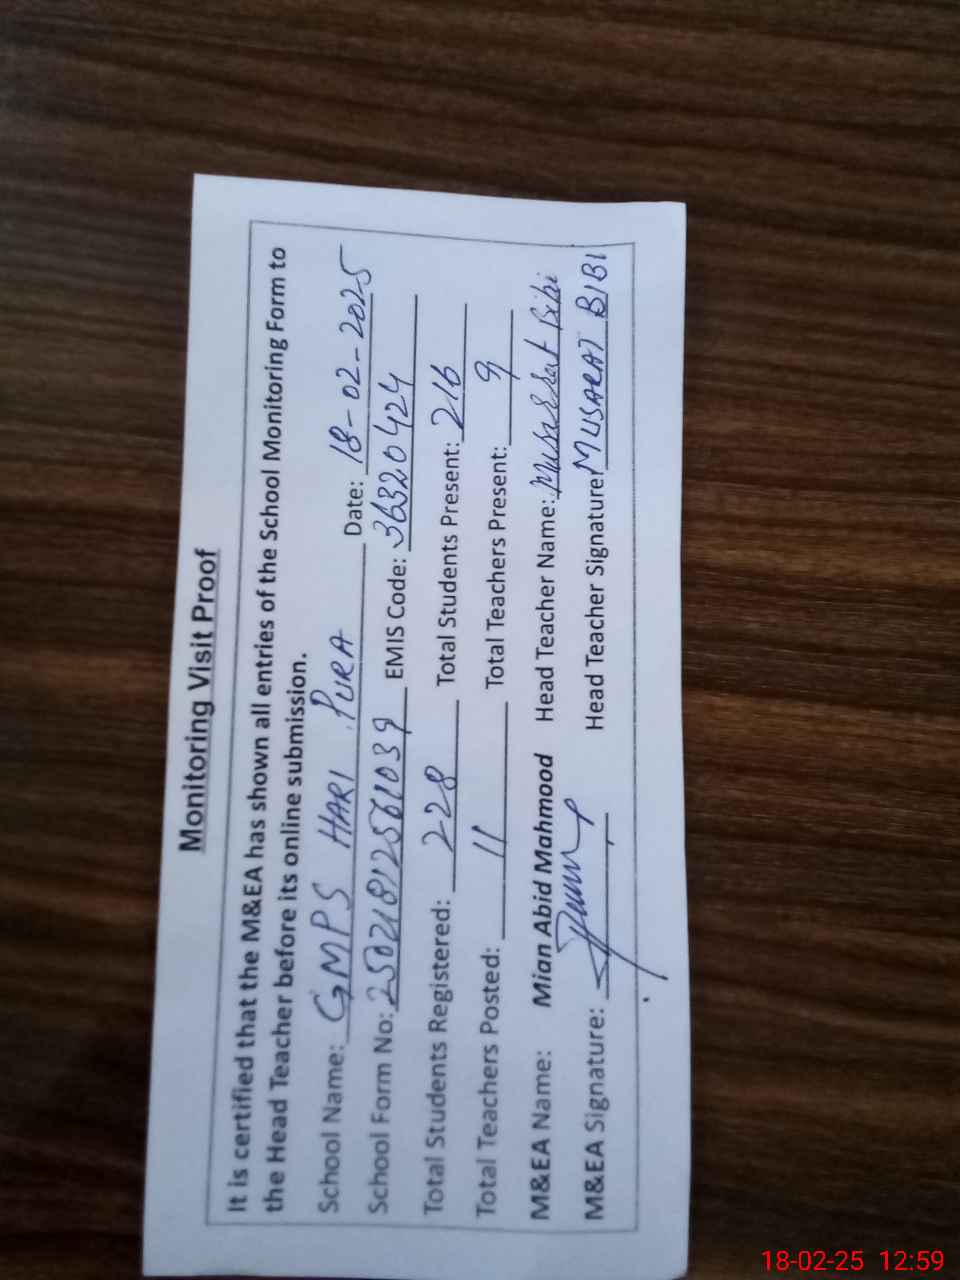 Monitoring Visit Proof
It is certified that the M&EA has shown all entries of the School Monitoring Form to
the Head Teacher before its online submission.
School Name: GMPS HARI PURA Date: 18-02-2025
School Form No: 25021812561039 EMIS Code: 36320424
Total Students Registered: 228 Total Students Present: 216
Total Teachers Posted: 11 Total Teachers Present: 9
M&EA Name: Mian Abid Mahmood Head Teacher Name: Bibi
M&EA Signature: Head Teacher Signature: MUSARAT BIBI
18-02-25 12:59